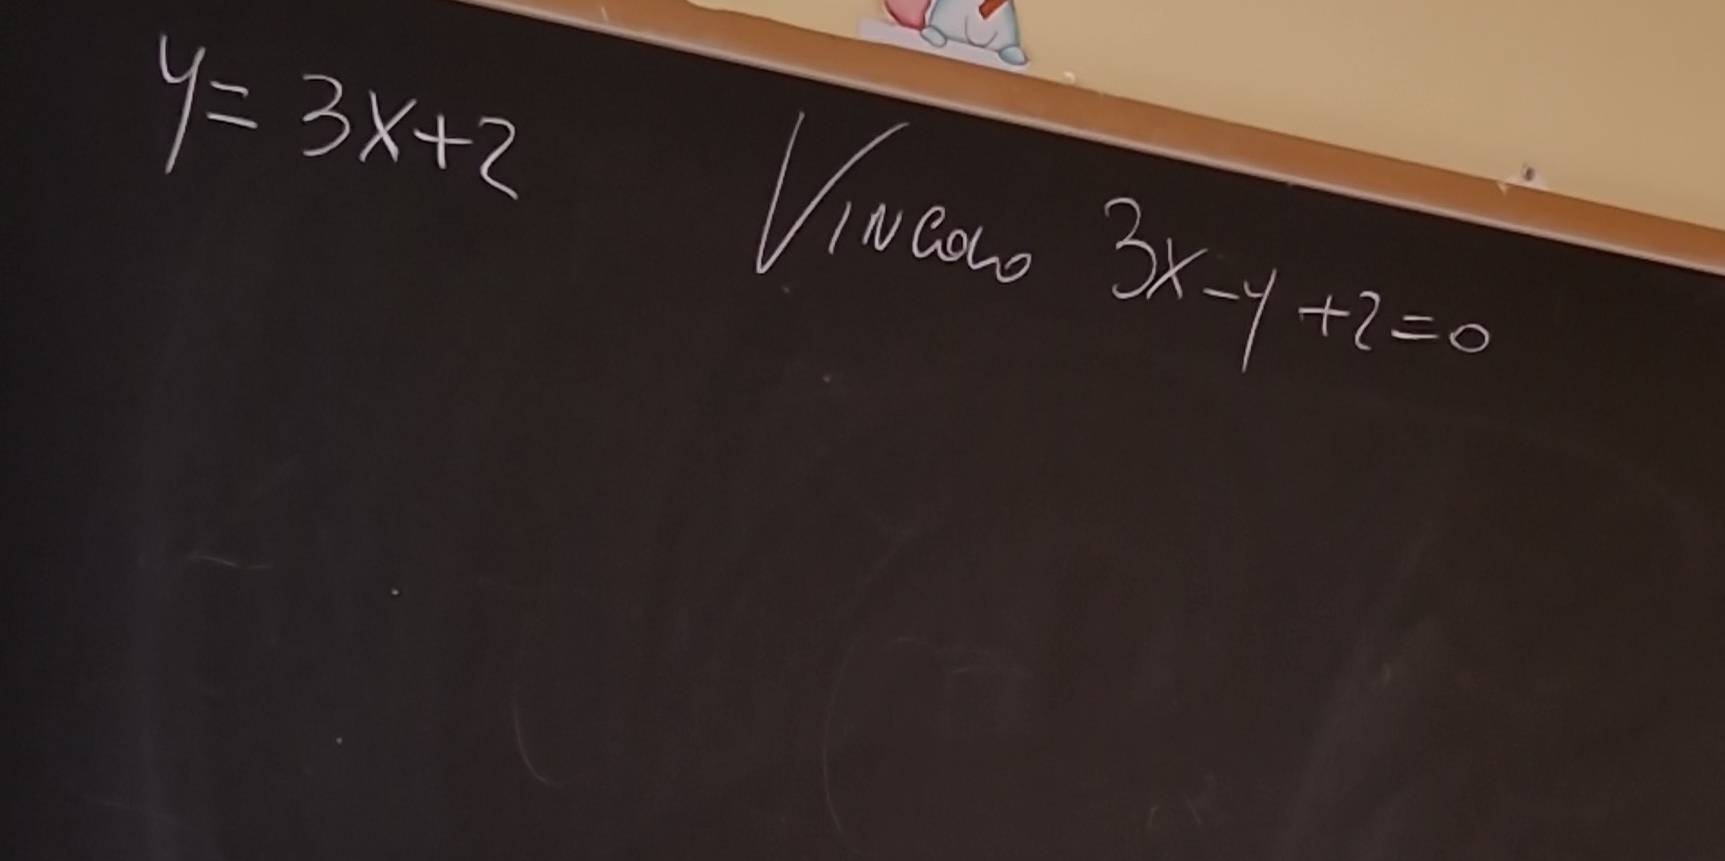 y = 3x+2
Vincolo 3x-y+2=0